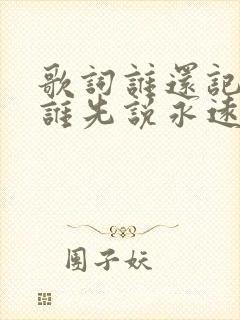 歌詞誰還記
誰先說永遠
團子妖